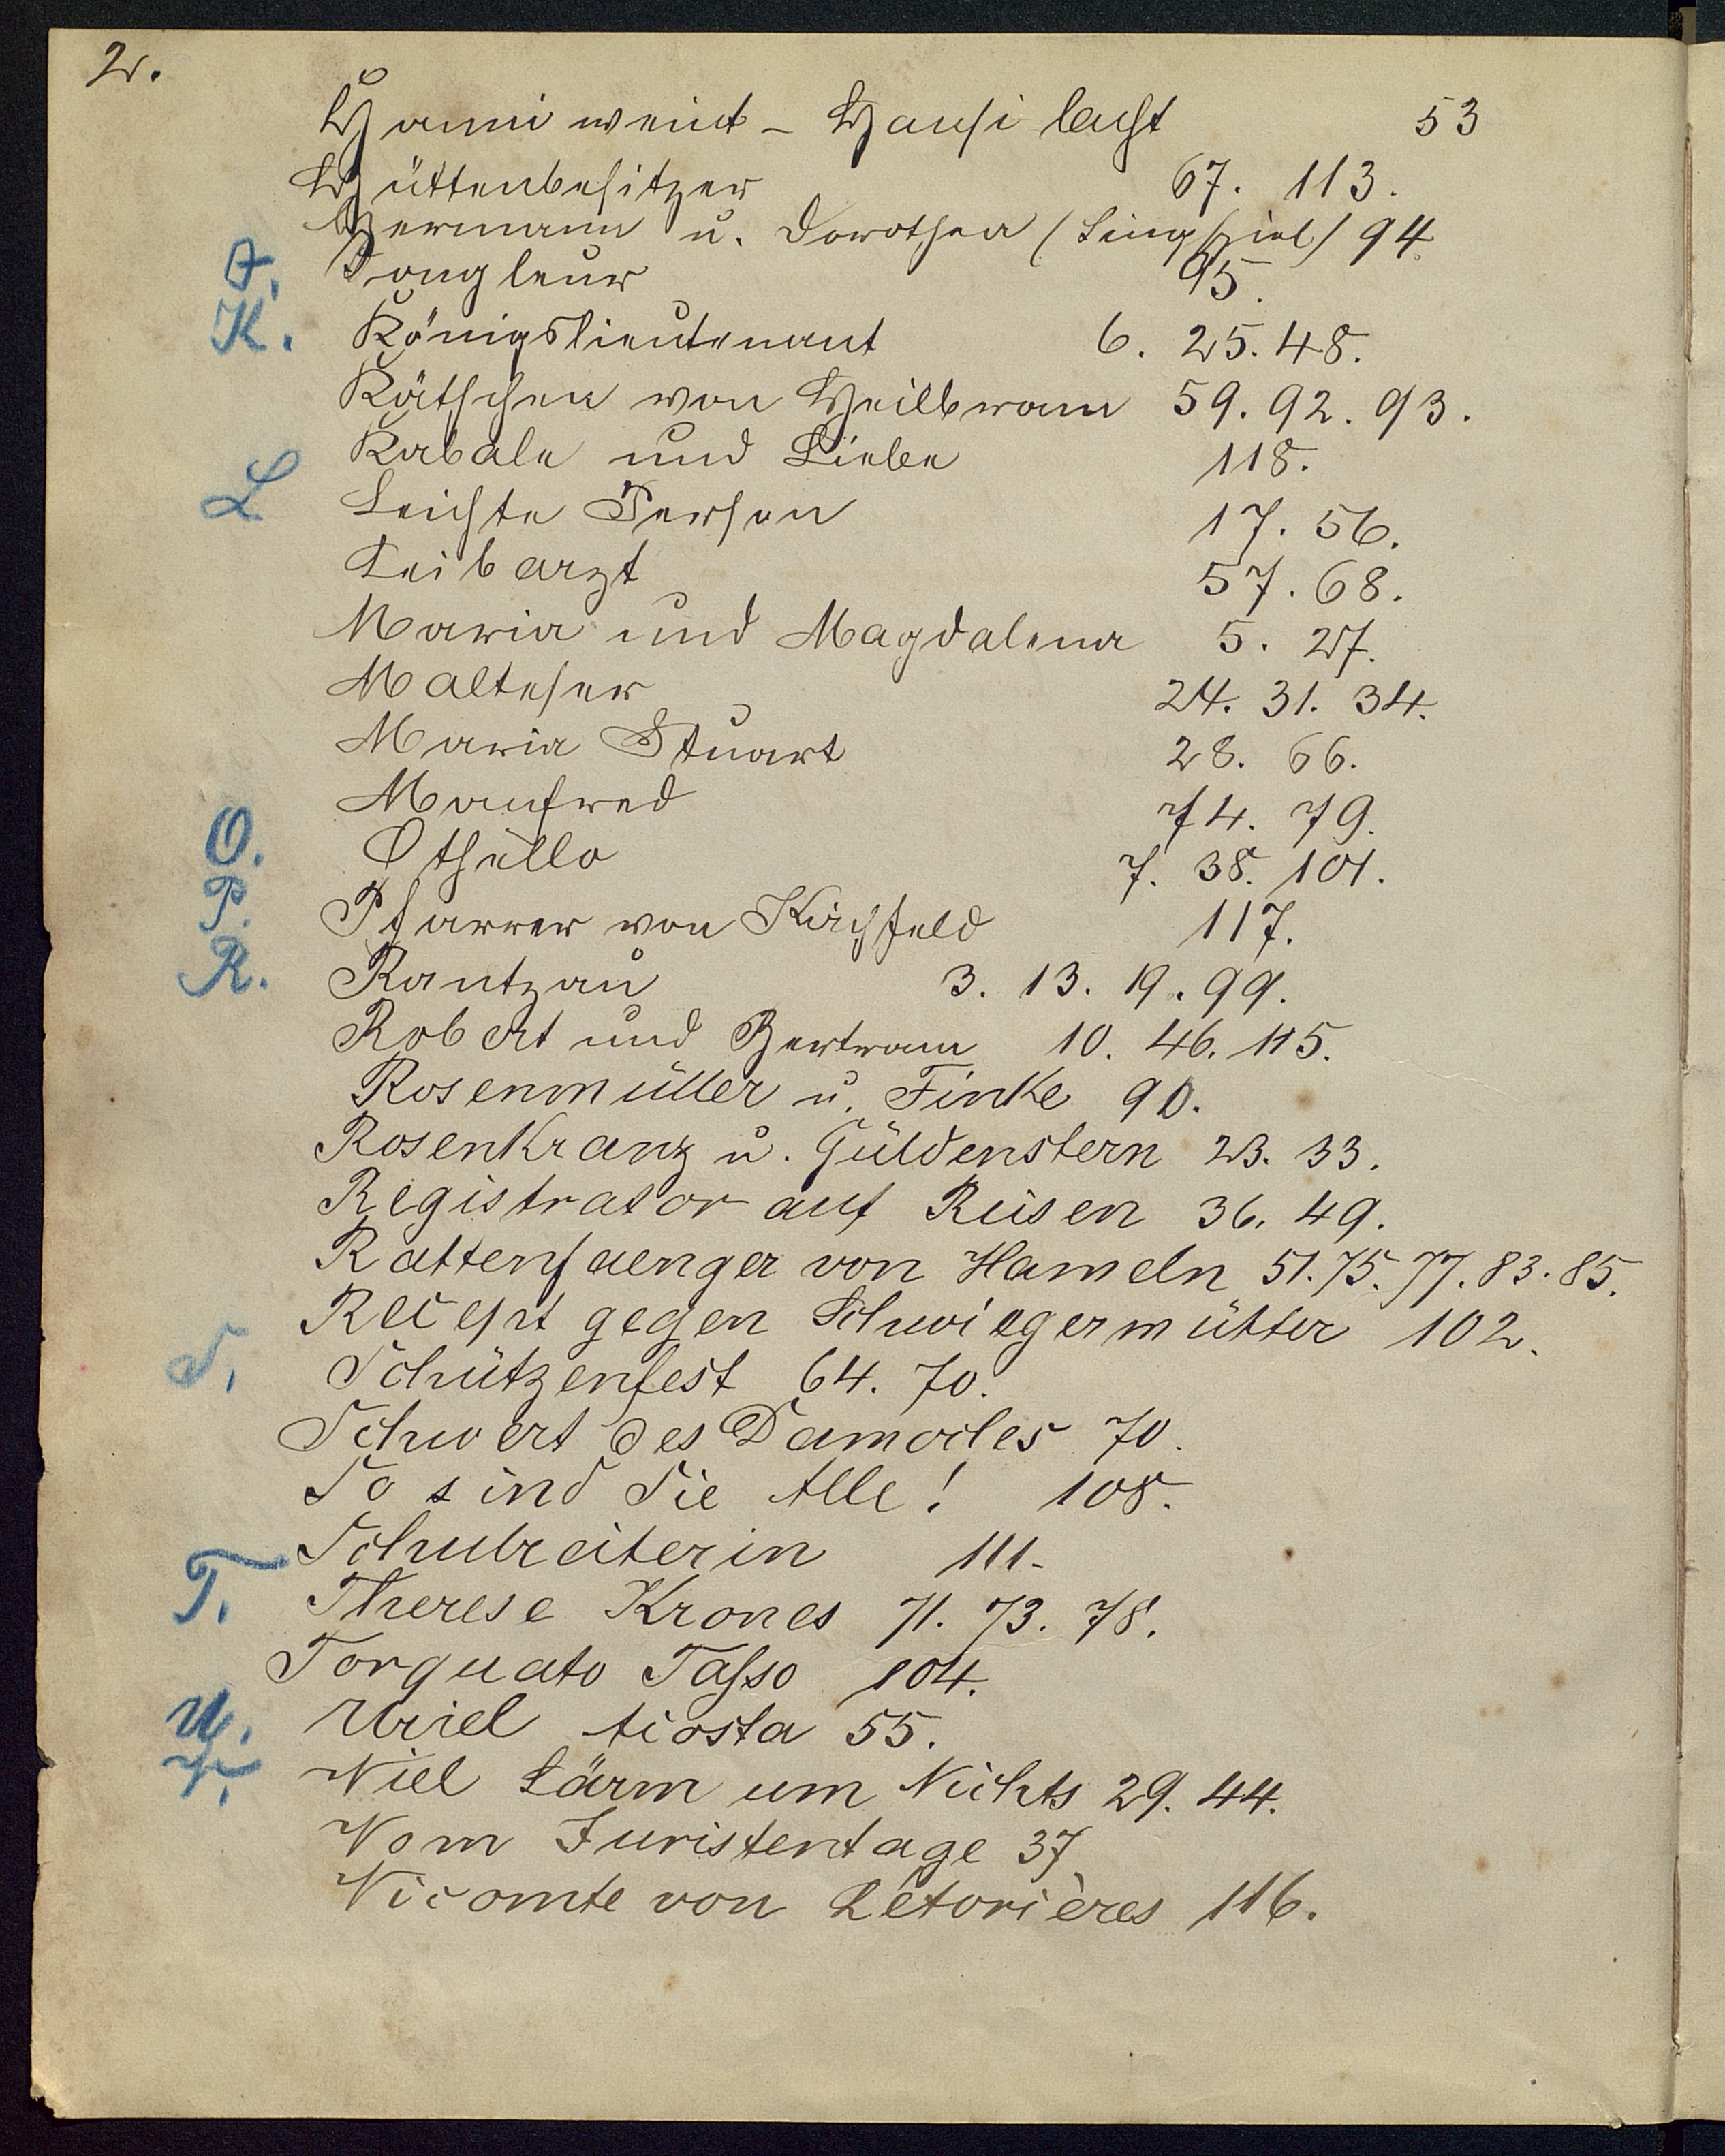 2.
Hanni weint - Hansi lacht 53
Hüttenbesitzer 67. 113.
Hermann u. Dorothea (Singspiel) 94
J. Jongleur 95.
K. Königslieutenant 6. 25. 48.
Käthchen von Heilbronn 59. 92. 93.
Kabale und Liebe 118.
L Leichte Person 17. 56.
Leibarzt 57. 68.
Maria und Magdalena 5. 27.
Malteser 24. 31. 34.
Maria Stuart 28. 66.
Manfred 74. 79.
O. Othello 7. 38. 101.
P. Pfarrer von Kirchfeld 117.
R. Rantzau 3. 13. 19. 99.
Robert und Bertram 10. 46. 115.
Rosenmüller u. Finke 90.
Rosenkranz u. Güldenstern 23. 33.
Registrator auf Reisen 36. 49.
Rattenfaenger von Hameln 51. 75. 77. 83. 85.
Recept gegen Schwiegermütter 102.
S. Schützenfest 64. 70.
Schwert des Damocles 70.
So sind Sie Alle! 108.
Schulreiterin 111.
T. Therese Krones 71. 73. 78.
Torquato Tasso 104.
U. Uriel Acosta 55.
V. Viel Lärm um Nichts 29. 44.
Vom Juristentage 37
Vicomte von Létorières 116.